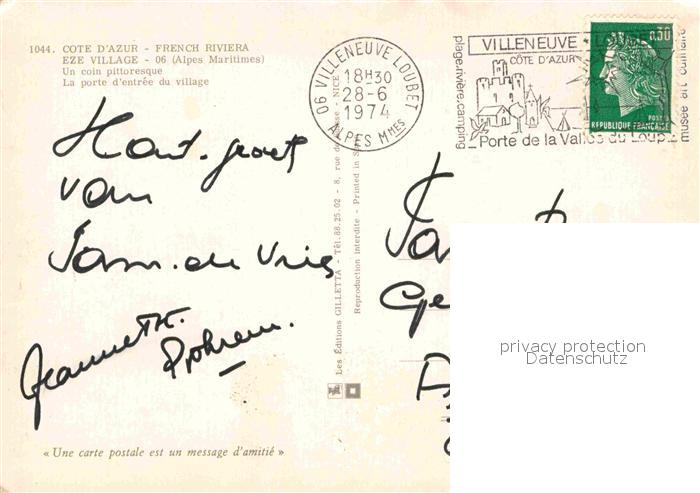 1044. COTE D'AZUR - FRENCH RIVIERA
EZE VILLAGE - 06 (Alpes Maritimes)
Un coin pittoresque
La porte d'entrée du village
06 VILLENEUVE LOUBET
18H30
28-6
1974
ALPES MMES
VILLENEUVE
CÔTE D'AZUR
plage.rivière.camping
musée art culinaire
Porte de la Vallée du Loup
0,30
POSTES
REPUBLIQUE FRANÇAISE
Hart. groet
van
Jam. de Vries
Jeannette.
Les Éditions GILLETTA - Tél: 88.25.02 - 8, rue - NICE
Reproduction interdite - Printed in
Ge
« Une carte postale est un message d'amitié »
privacy protection
Datenschutz